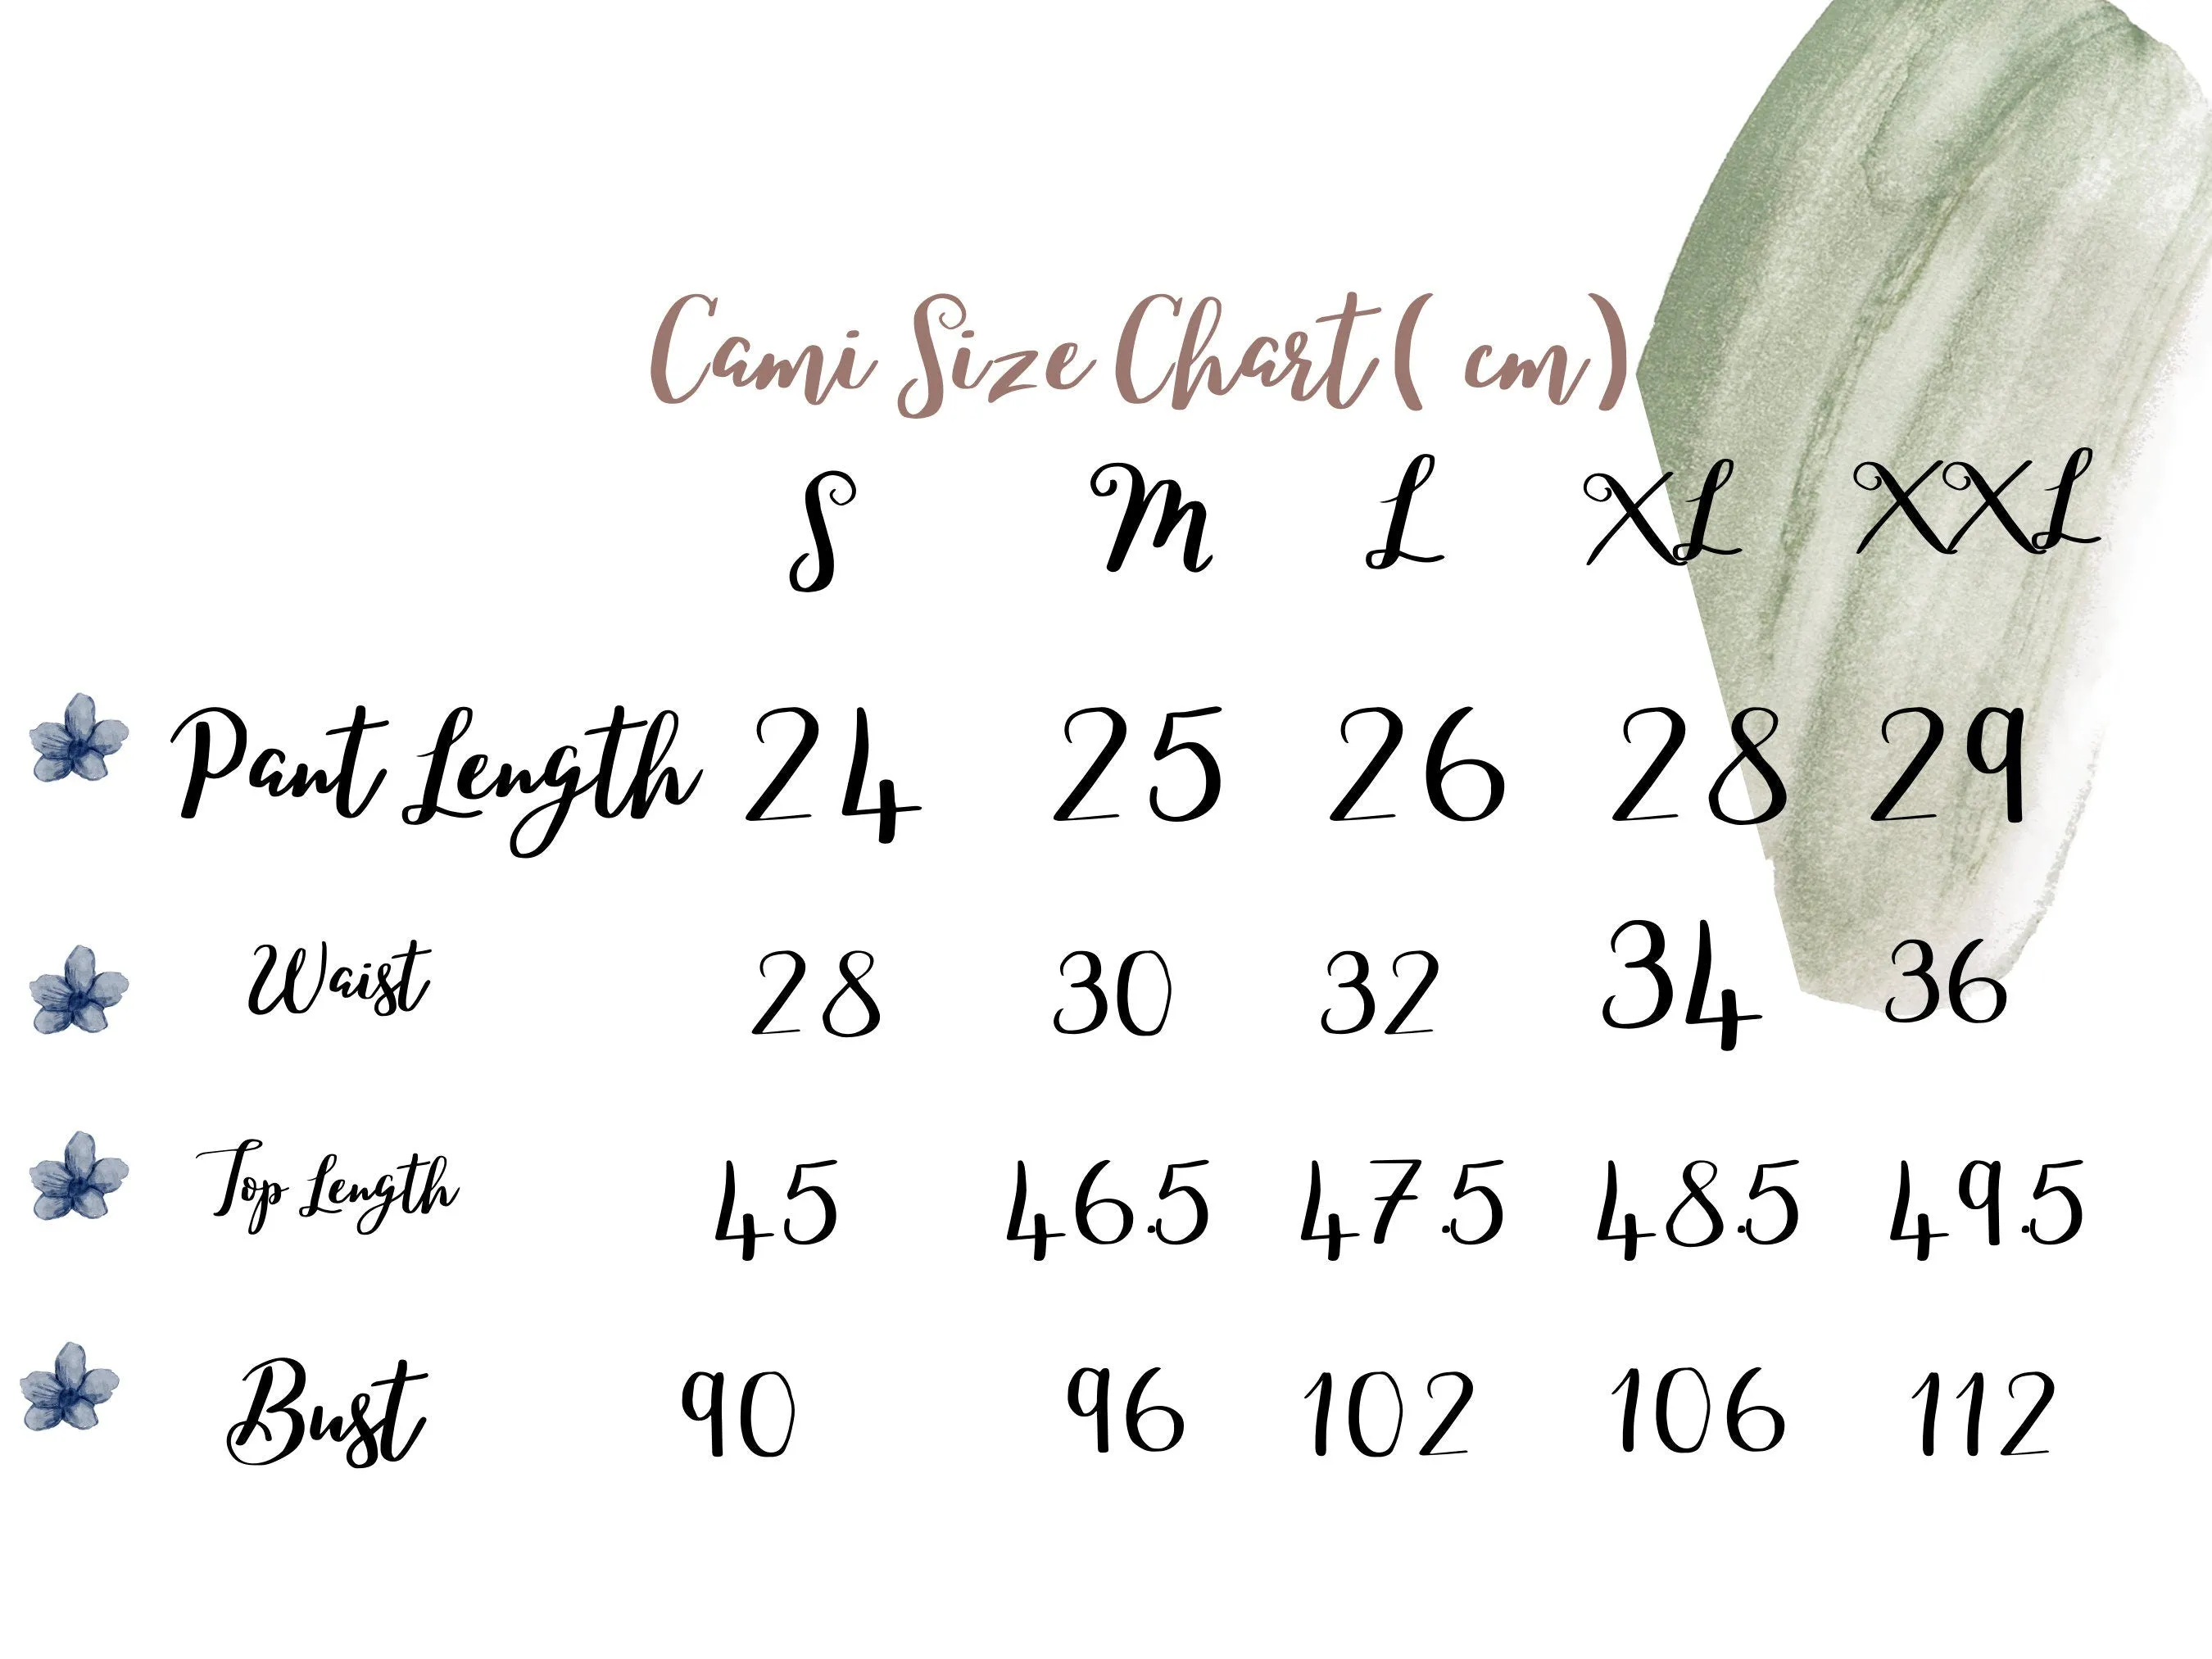 Cami Size Chart ( cm )
S M L XL XXL
Pant Length 24 25 26 28 29
Waist 28 30 32 34 36
Top Length 45 46.5 47.5 48.5 49.5
Bust 90 96 102 106 112